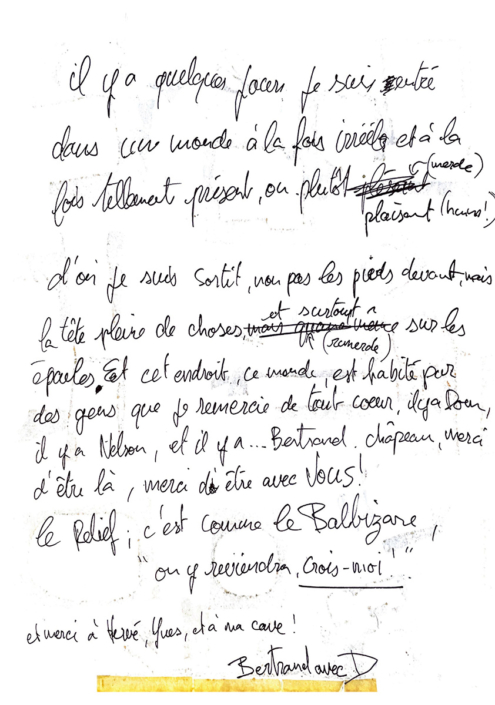 il y a quelques jours je suis rentré
dans un monde à la fois irréel et à la
fois tellement présent, ou plutôt (merde)
plaisant (hums!)
d'où je suis sortit, non pas les pieds devant, mais
la tête pleine de choses, et surtout sur les
(remerde)
épaules. Et cet endroit, ce monde, est habité par
des gens que je remercie de tout coeur, il y a
il y a Nelson, et il y a... Bertrand. châpeau, merci
d'être là, merci d'être avec Vous!
le Relief; c'est comme le Balbizare,
"on y reviendra, Crois-moi!"
et merci à Hervé, Yves, et à ma cave!
Bertrand avec D